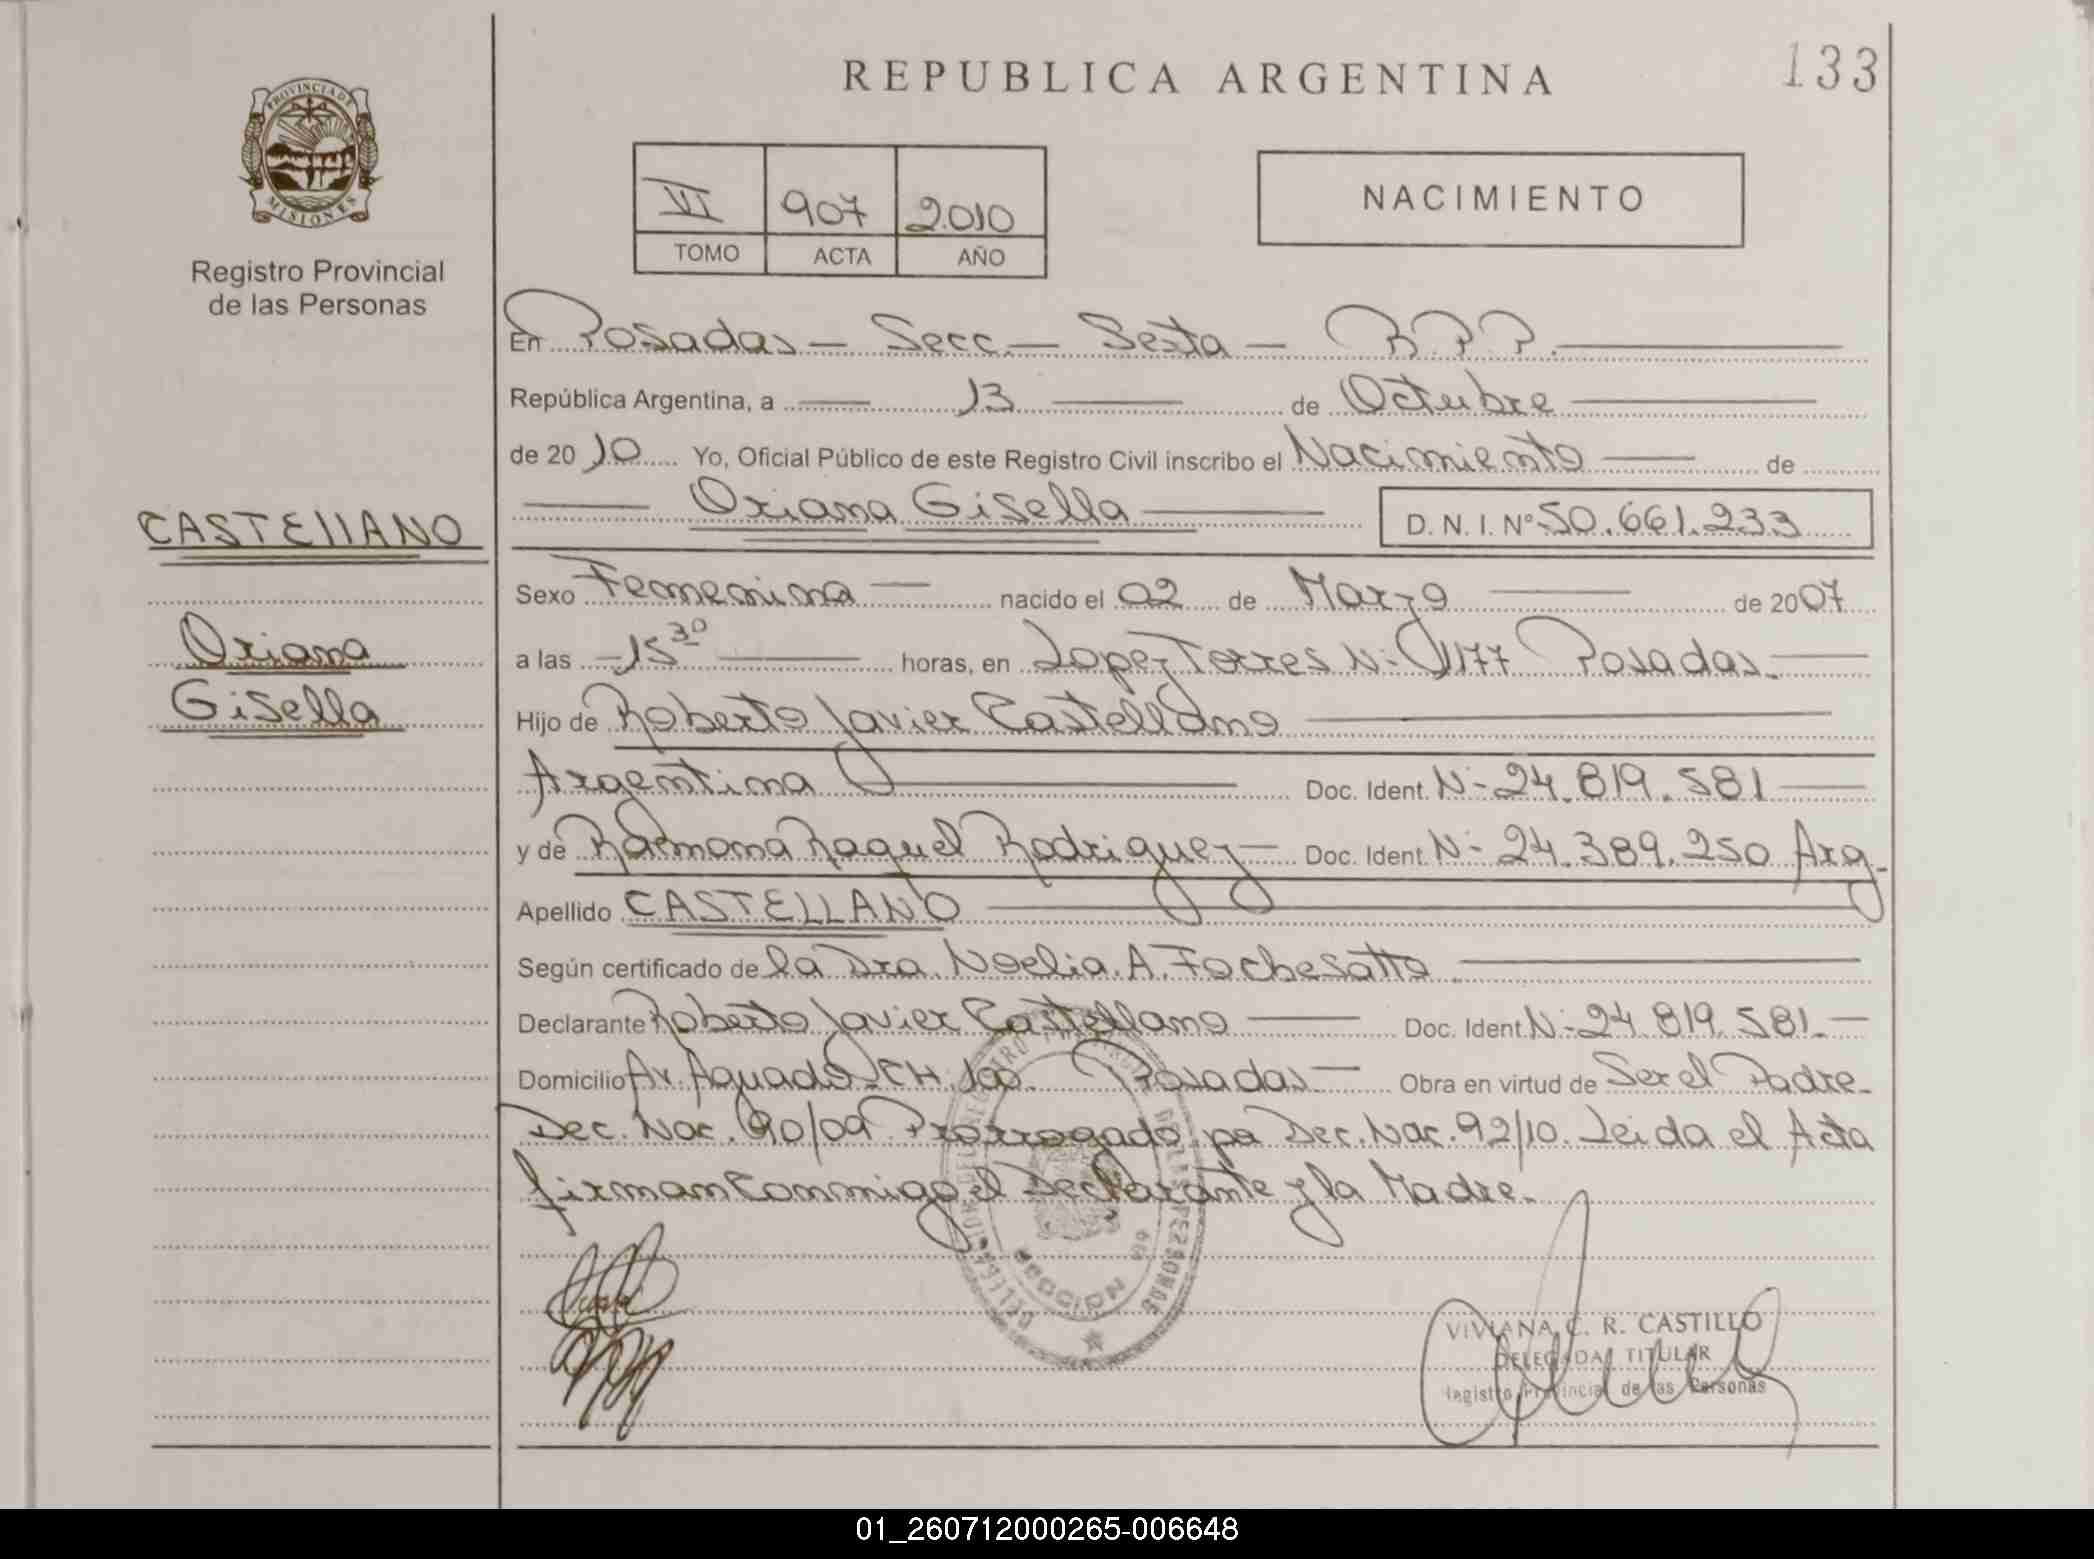 REPUBLICA ARGENTINA
133
PROVINCIA DE
MISIONES
Registro Provincial
de las Personas
VI 907 2010
TOMO ACTA AÑO
NACIMIENTO
En Posadas - Secc. - Sexta - R.P.P.
República Argentina, a 13 de Octubre
de 2010 Yo, Oficial Público de este Registro Civil inscribo el Nacimiento de
Oriana Gisella D. N. I. Nº 50.661.233
CASTEllANO
Oriana
Gisella
Sexo Femenina nacido el 02 de Marzo de 2007
a las 15 30 horas, en Lopez Torres N- 1177 Posadas.
Hijo de Roberto Javier Castellano
Argentina Doc. Ident. N- 24.819.581
y de Ramona Raquel Rodriguez Doc. Ident. N- 24.389.250 Arg.
Apellido CASTELLANO
Según certificado de la Dra. Noelia. A. Fochesatto
Declarante Roberto Javier Castellano Doc. Ident. N- 24.819.581.
Domicilio Av. Aguado CH. Posadas Obra en virtud de Ser el Padre.
Dec. Nac. 90/09 Prorrogado por Dec. Nac. 92/10. Leida el Acta
firman Conmigo el Declarante y la Madre.
SECCION
DE LAS PERSONAS
VIVIANA C. R. CASTILLO
DELEGADA TITULAR
Registro Provincial de las Personas
01_260712000265-006648